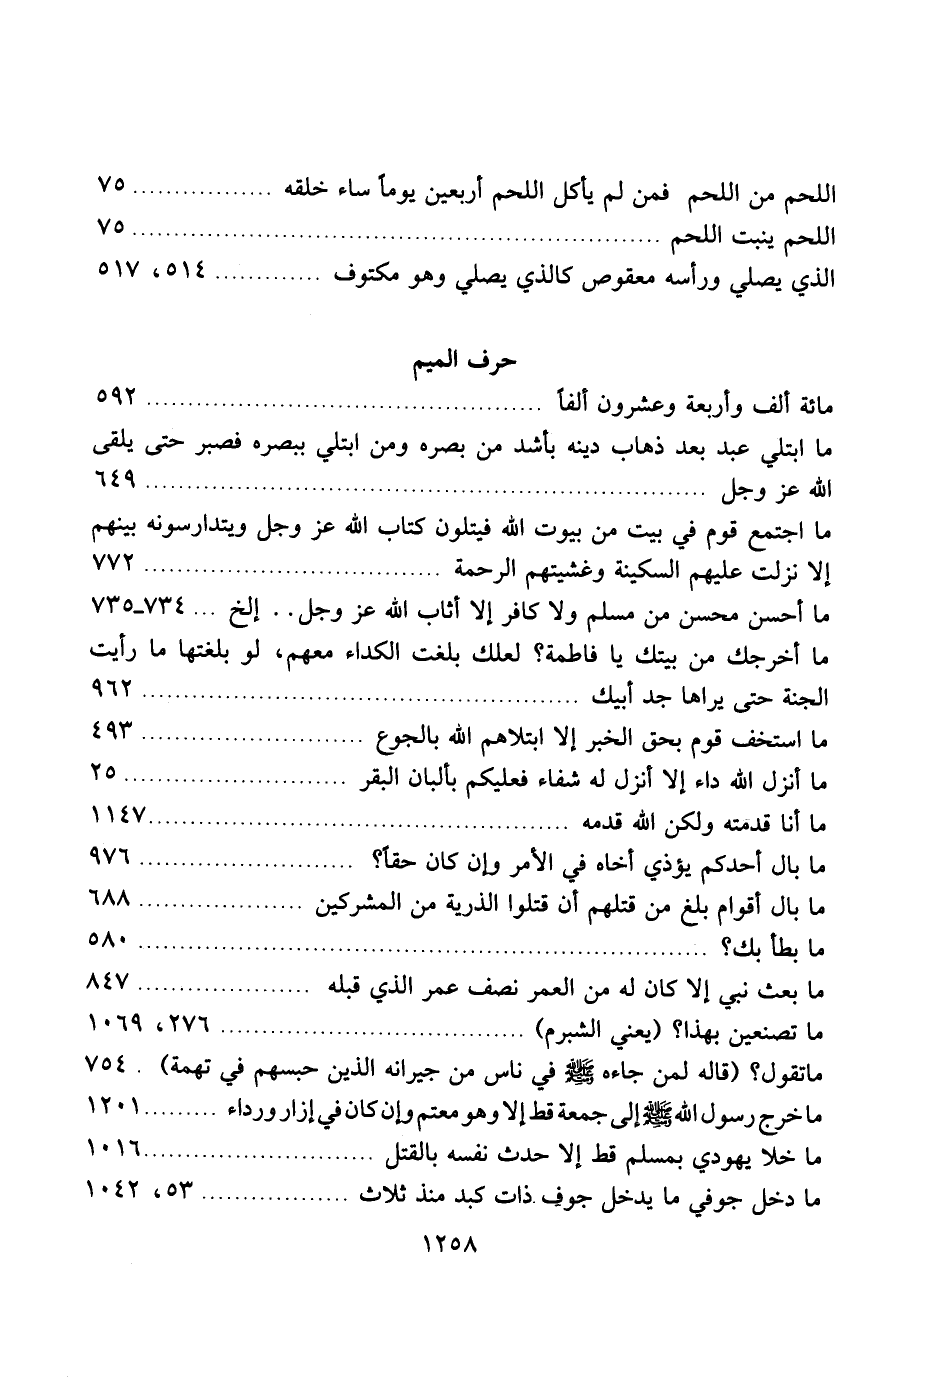 اللحم من اللحم فمن لم يأكل اللحم أربعين يوماً ساء خلقه ................ ٧٥
اللحم ينبت اللحم ................................................................ ٧٥
الذي يصلي ورأسه معقوص كالذي يصلي وهو مكتوف ............. ٥١٤، ٥١٧
حرف الميم
مائة ألف وأربعة وعشرون ألفاً ................................................ ٥٩٢
ما ابتلي عبد بعد ذهاب دينه بأشد من بصره ومن ابتلي ببصره فصبر حتى يلقى
الله عز وجل .................................................................... ٦٤٩
ما اجتمع قوم في بيت من بيوت الله فيتلون كتاب الله عز وجل ويتدارسونه بينهم
إلا نزلت عليهم السكينة وغشيتهم الرحمة .................................... ٧٧٢
ما أحسن محسن من مسلم ولا كافر إلا أثاب الله عز وجل.. إلخ ... ٧٣٤ـ٧٣٥
ما أخرجك من بيتك يا فاطمة؟ لعلك بلغت الكداء معهم، لو بلغتها ما رأيت
الجنة حتى يراها جد أبيك ..................................................... ٩٦٢
ما استخف قوم بحق الخبر إلا ابتلاهم الله بالجوع ........................... ٤٩٣
ما أنزل الله داء إلا أنزل له شفاء فعليكم بألبان البقر ........................... ٢٥
ما أنا قدمته ولكن الله قدمه ...................................................١١٤٧
ما بال أحدكم يؤذي أخاه في الأمر وإن كان حقاً؟ .......................... ٩٧٦
ما بال أقوام بلغ من قتلهم أن قتلوا الذرية من المشركين .................... ٦٨٨
ما بطأ بك؟ ..................................................................... ٥٨٠
ما بعث نبي إلا كان له من العمر نصف عمر الذي قبله ..................... ٨٤٧
ما تصنعين بهذا؟ (يعني الشبرم) ..................................... ٢٧٦، ١٠٦٩
ماتقول؟ (قاله لمن جاءه ﷺ في ناس من جيرانه الذين حبسهم في تهمة) . ٧٥٤
ماخرج رسول الله ﷺ إلى جمعة قط إلا وهو معتم وإن كان في إزار ورداء .........١٢٠١
ما خلا يهودي بمسلم قط إلا حدث نفسه بالقتل ............................١٠١٦
ما دخل جوفي ما يدخل جوف ذات كبد منذ ثلاث .................. ٥٣، ١٠٤٢
١٢٥٨